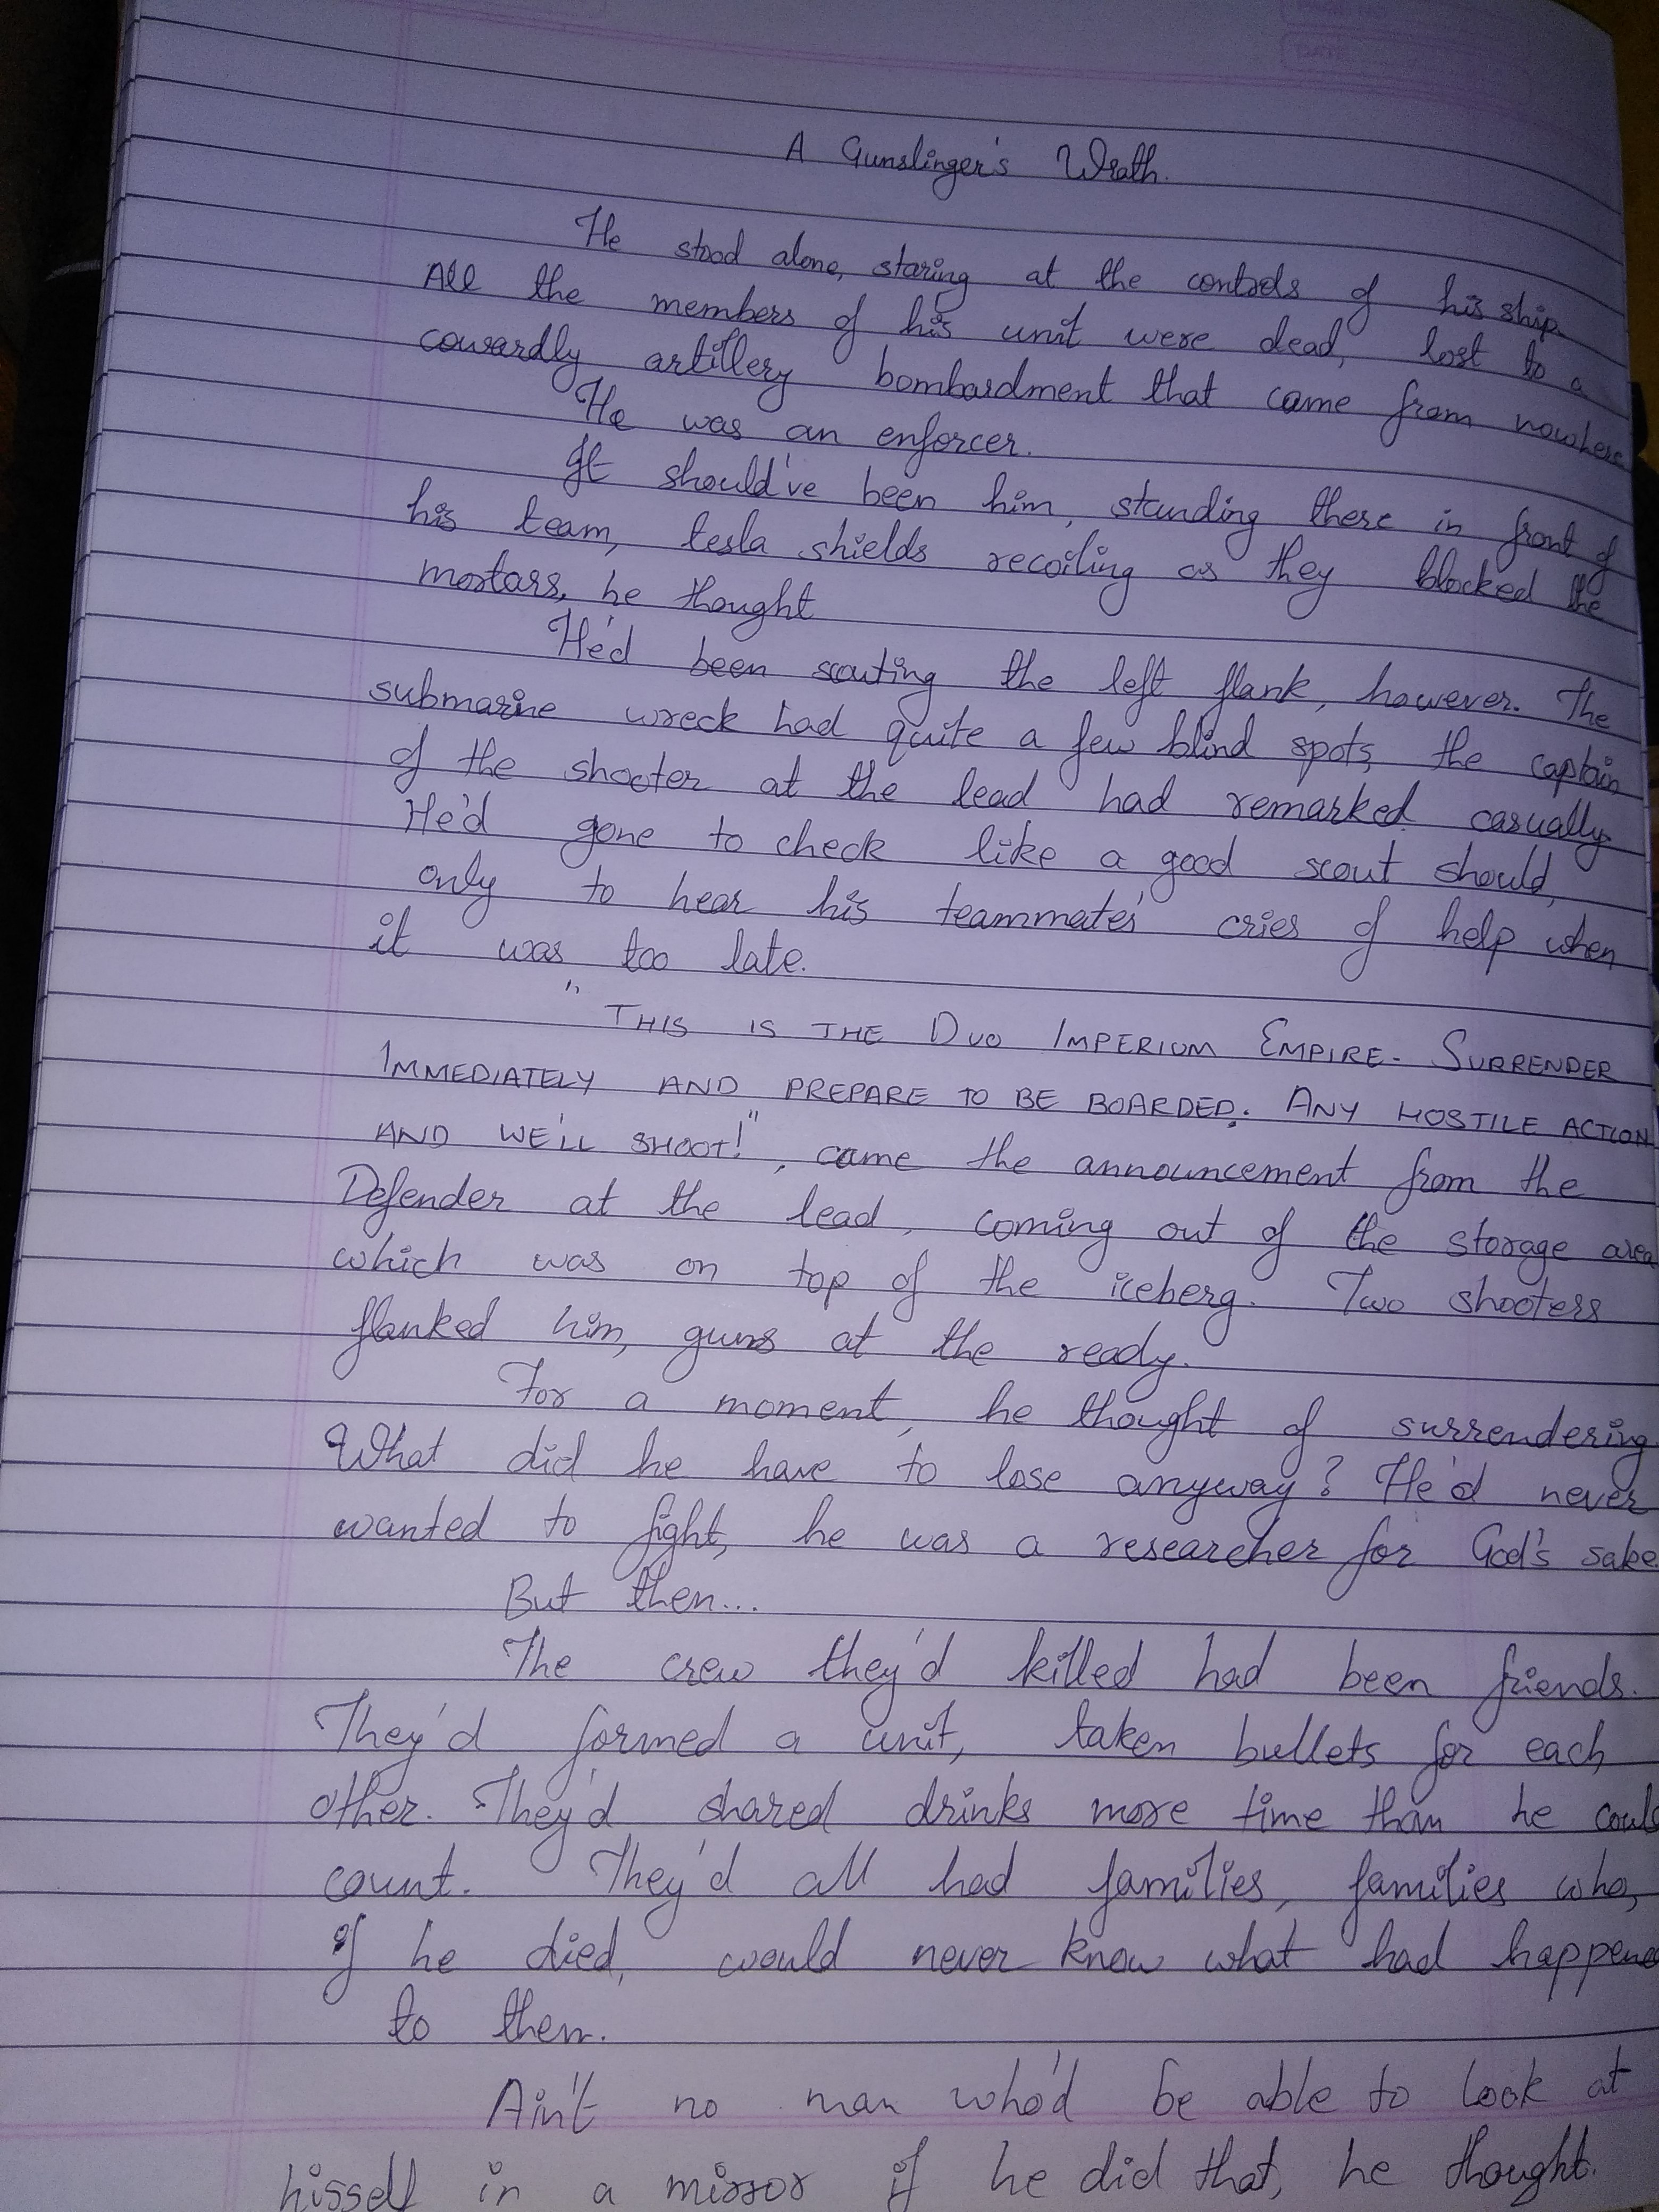 A Gunslinger's Wrath.
He stood alone, staring at the controls of his ship.
All the members of his unit were dead, lost to a
cowardly artillery bombardment that came from nowhere
He was an enforcer.
It should've been him, standing there in front of
his team, tesla shields recoiling as they blocked the
mortars, he thought
He'd been scouting the left flank, however. The
submarine wreck had quite a few blind spots, the captain
of the shooter at the lead had remarked casually.
He'd gone to check like a good scout should,
only to hear his teammates' cries of help when
it was too late.
"THIS IS THE DUO IMPERIUM EMPIRE. SURRENDER
IMMEDIATELY AND PREPARE TO BE BOARDED. ANY HOSTILE ACTION
AND WE'LL SHOOT!", came the announcement from the
Defender at the lead, coming out of the storage area
which was on top of the iceberg. Two shooters
flanked him, guns at the ready.
For a moment, he thought of surrendering
What did he have to lose anyway? He'd never
wanted to fight, he was a researcher for God's sake
But then...
The crew they'd killed had been friends.
They'd formed a unit, taken bullets for each
other. They'd shared drinks more time than he could
count. They'd all had families, families who,
if he died, would never know what had happened
to them.
Ain't no man who'd be able to look at
hisself in a mirror if he did that, he thought.